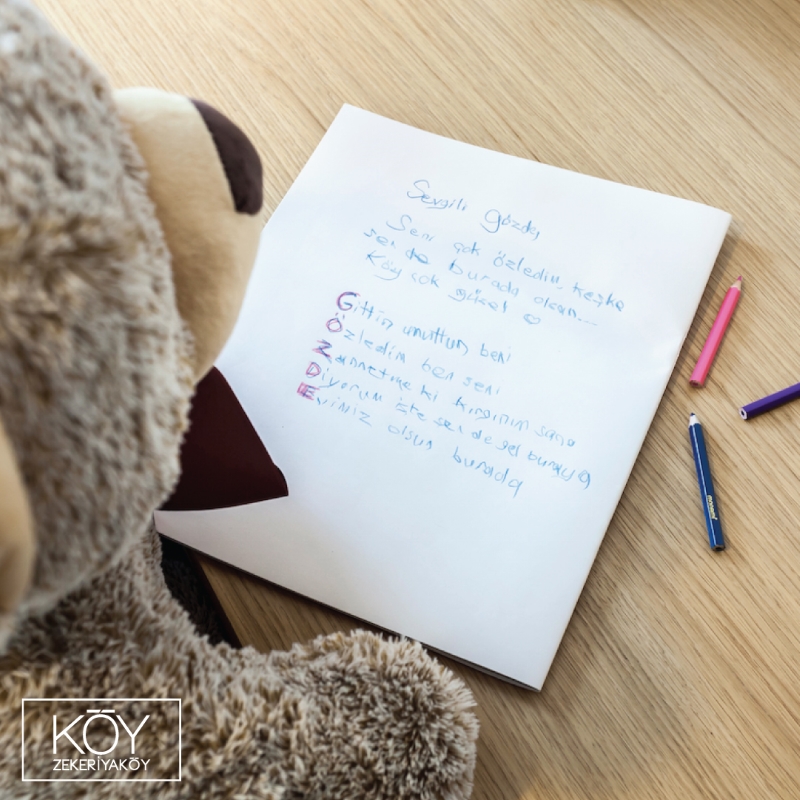 Sevgili Gözde,
Seni çok özledim, keşke
sen de burada olsan...
Köy çok güzel
Gittin unuttun beni
Özledim ben seni
Zannetme ki kırgınım sana
Diyorum işte sen de gel buraya
Evimiz olsun burada
KÖY
ZEKERİYAKÖY